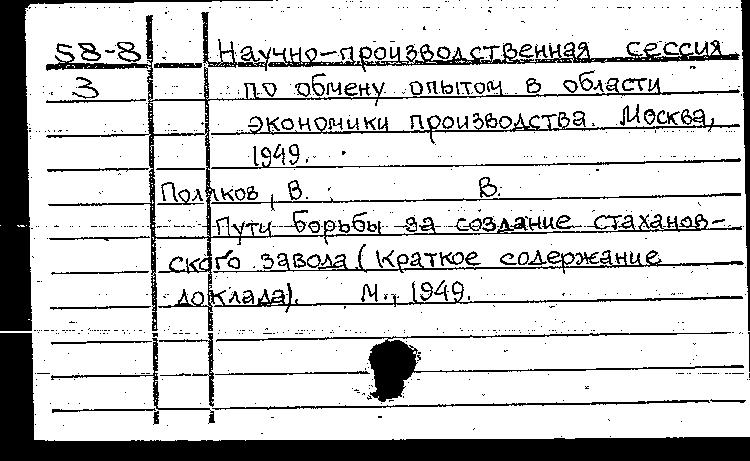 58-8 Научно-производственная сессия
3 по обмену опытом в области
экономики производства. Москва,
1949.
Поляков, В. В.
Пути борьбы за создание стаханов-
ского завода (Краткое содержание
доклада). М., 1949.